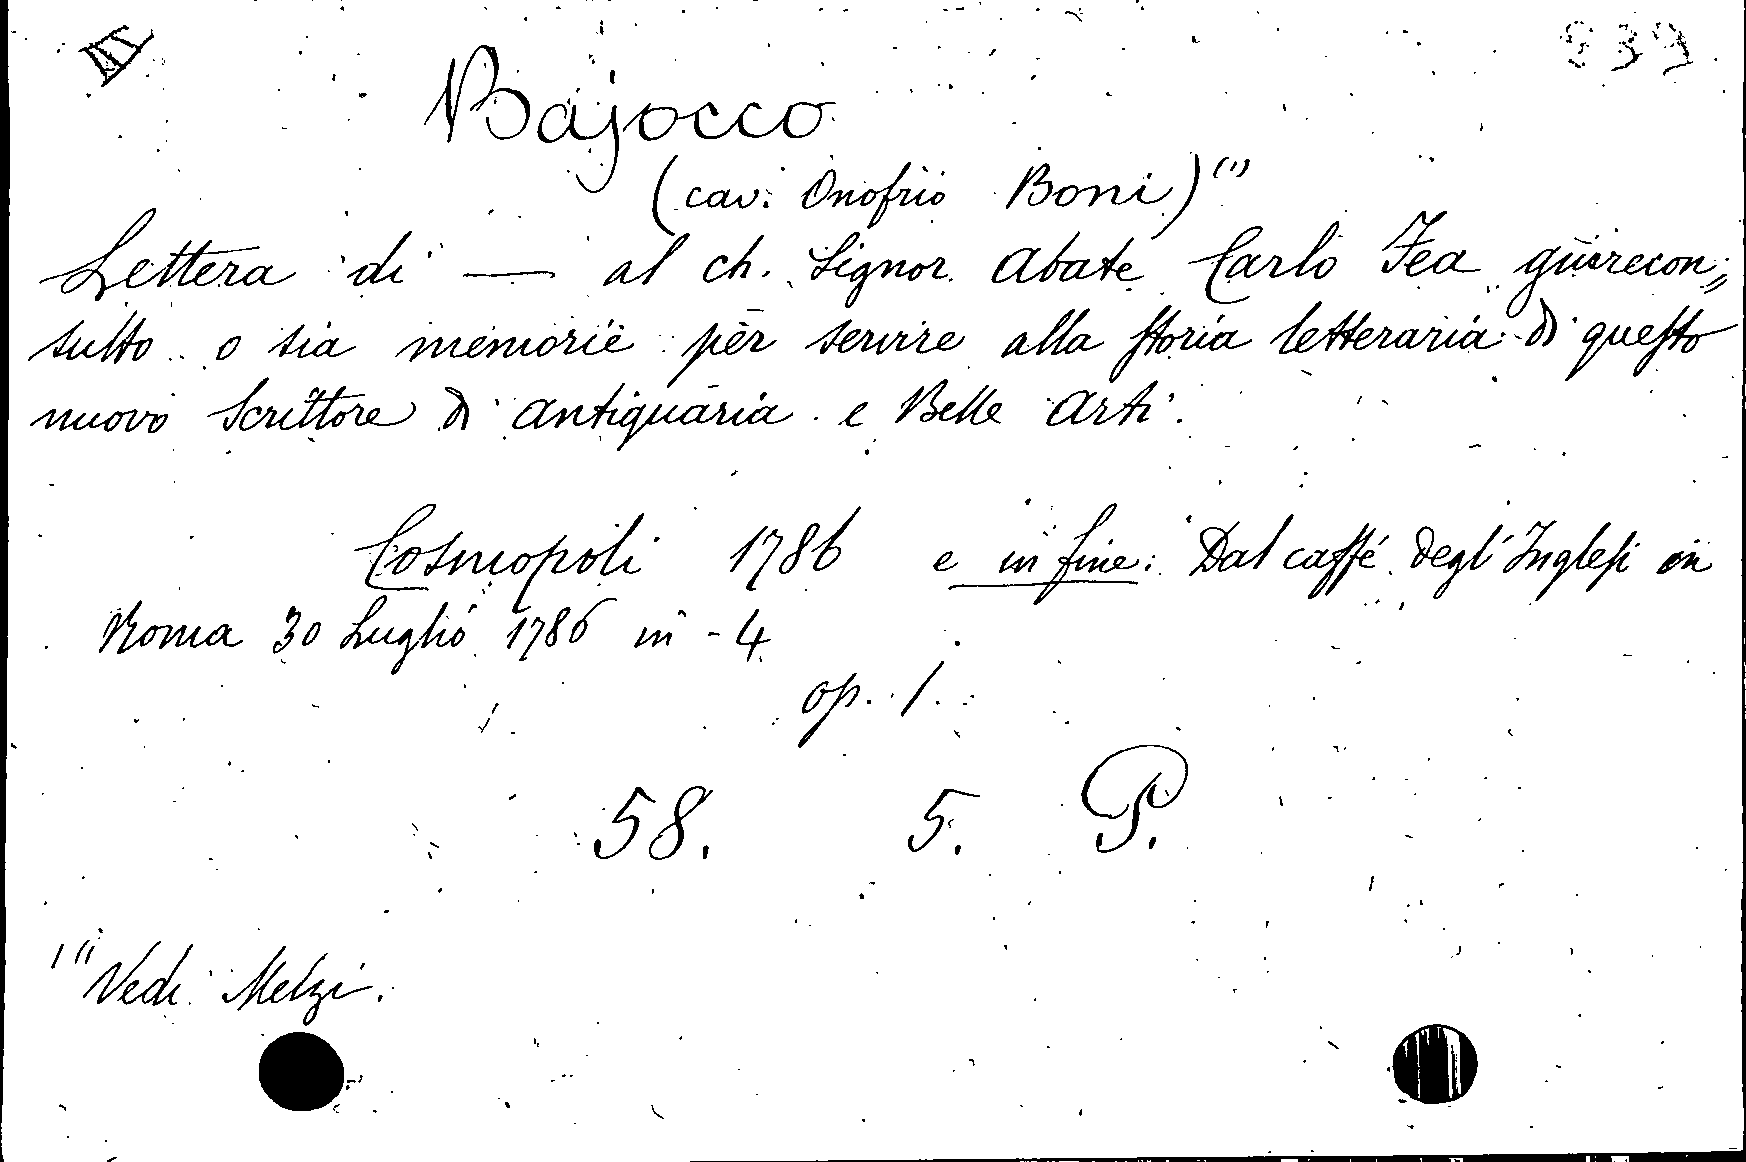 III 239
Bajocco
(cav: Onofrio Boni) (1)
Lettera di — al ch. Signor Abate Carlo Fea giurecon=
sulto o sia memorie per servire alla storia letteraria di questo
nuovo Scrittore di antiquaria e Belle Arti.
Cosmopoli 1786 e in fine: Dal caffé degl'Inglesi in
Roma 30 Luglio 1786 in-4
op. 1.
58. 5. P.
(1) Vedi Melzi.